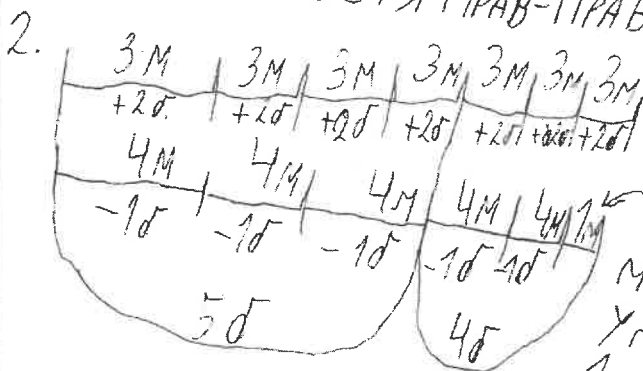 ПРАВ-ПРАВ
2.
3м 3м 3м 3м 3м 3м 3м
+2б. +2б +2б +2б +2б +2б +2б
4м 4м 4м 4м 4м 1м
-1б -1б -1б -1б -1б
5б 4б